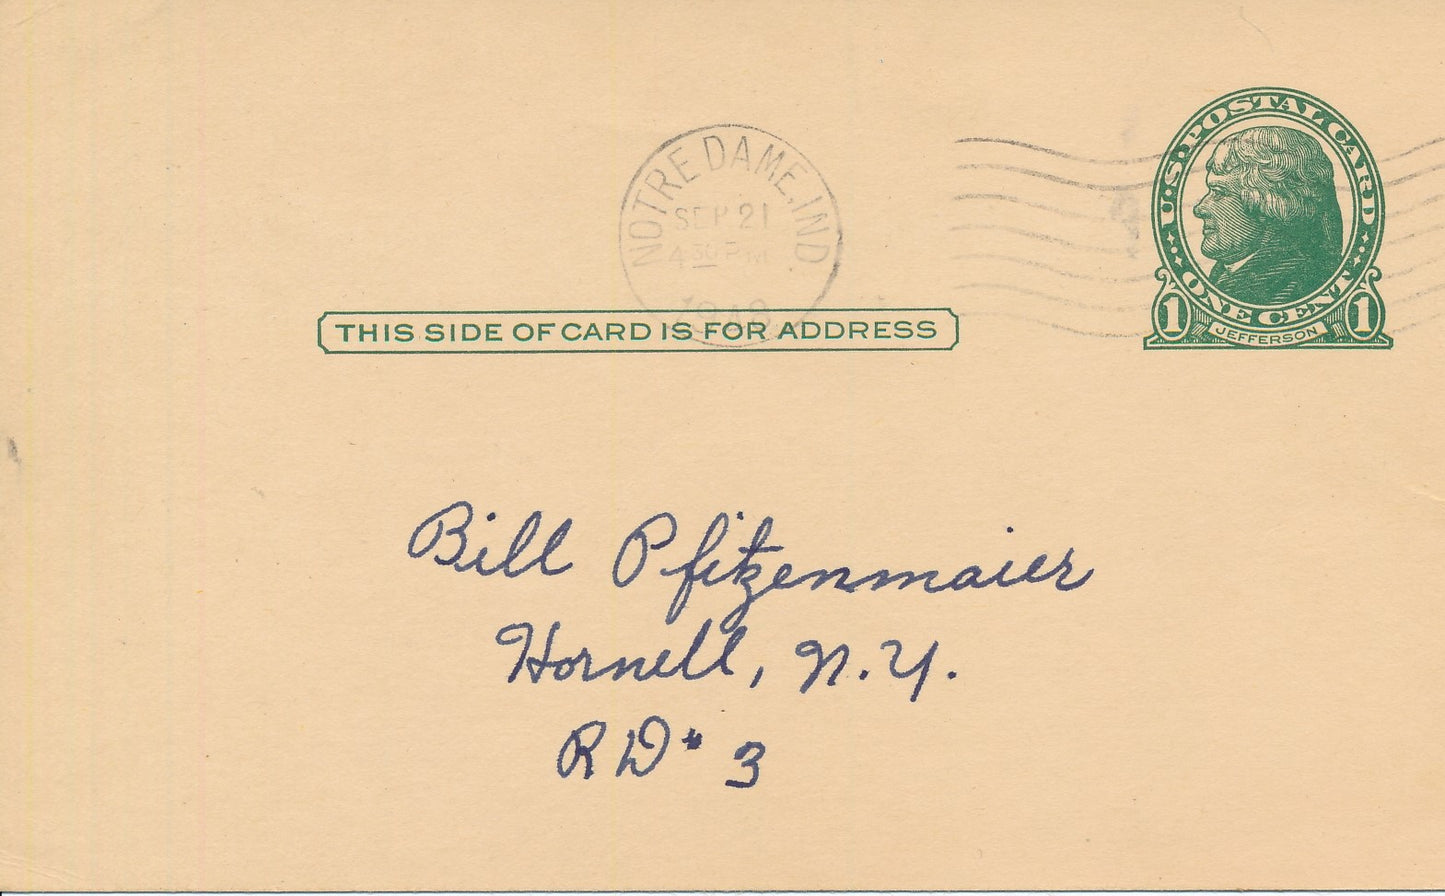 NOTRE DAME, IND.
SEP 21
4 30 PM
1948
U·S·POSTAL CARD
ONE CENT
1 JEFFERSON 1
THIS SIDE OF CARD IS FOR ADDRESS
Bill Pfitzenmaier
Hornell, N.Y.
RD # 3